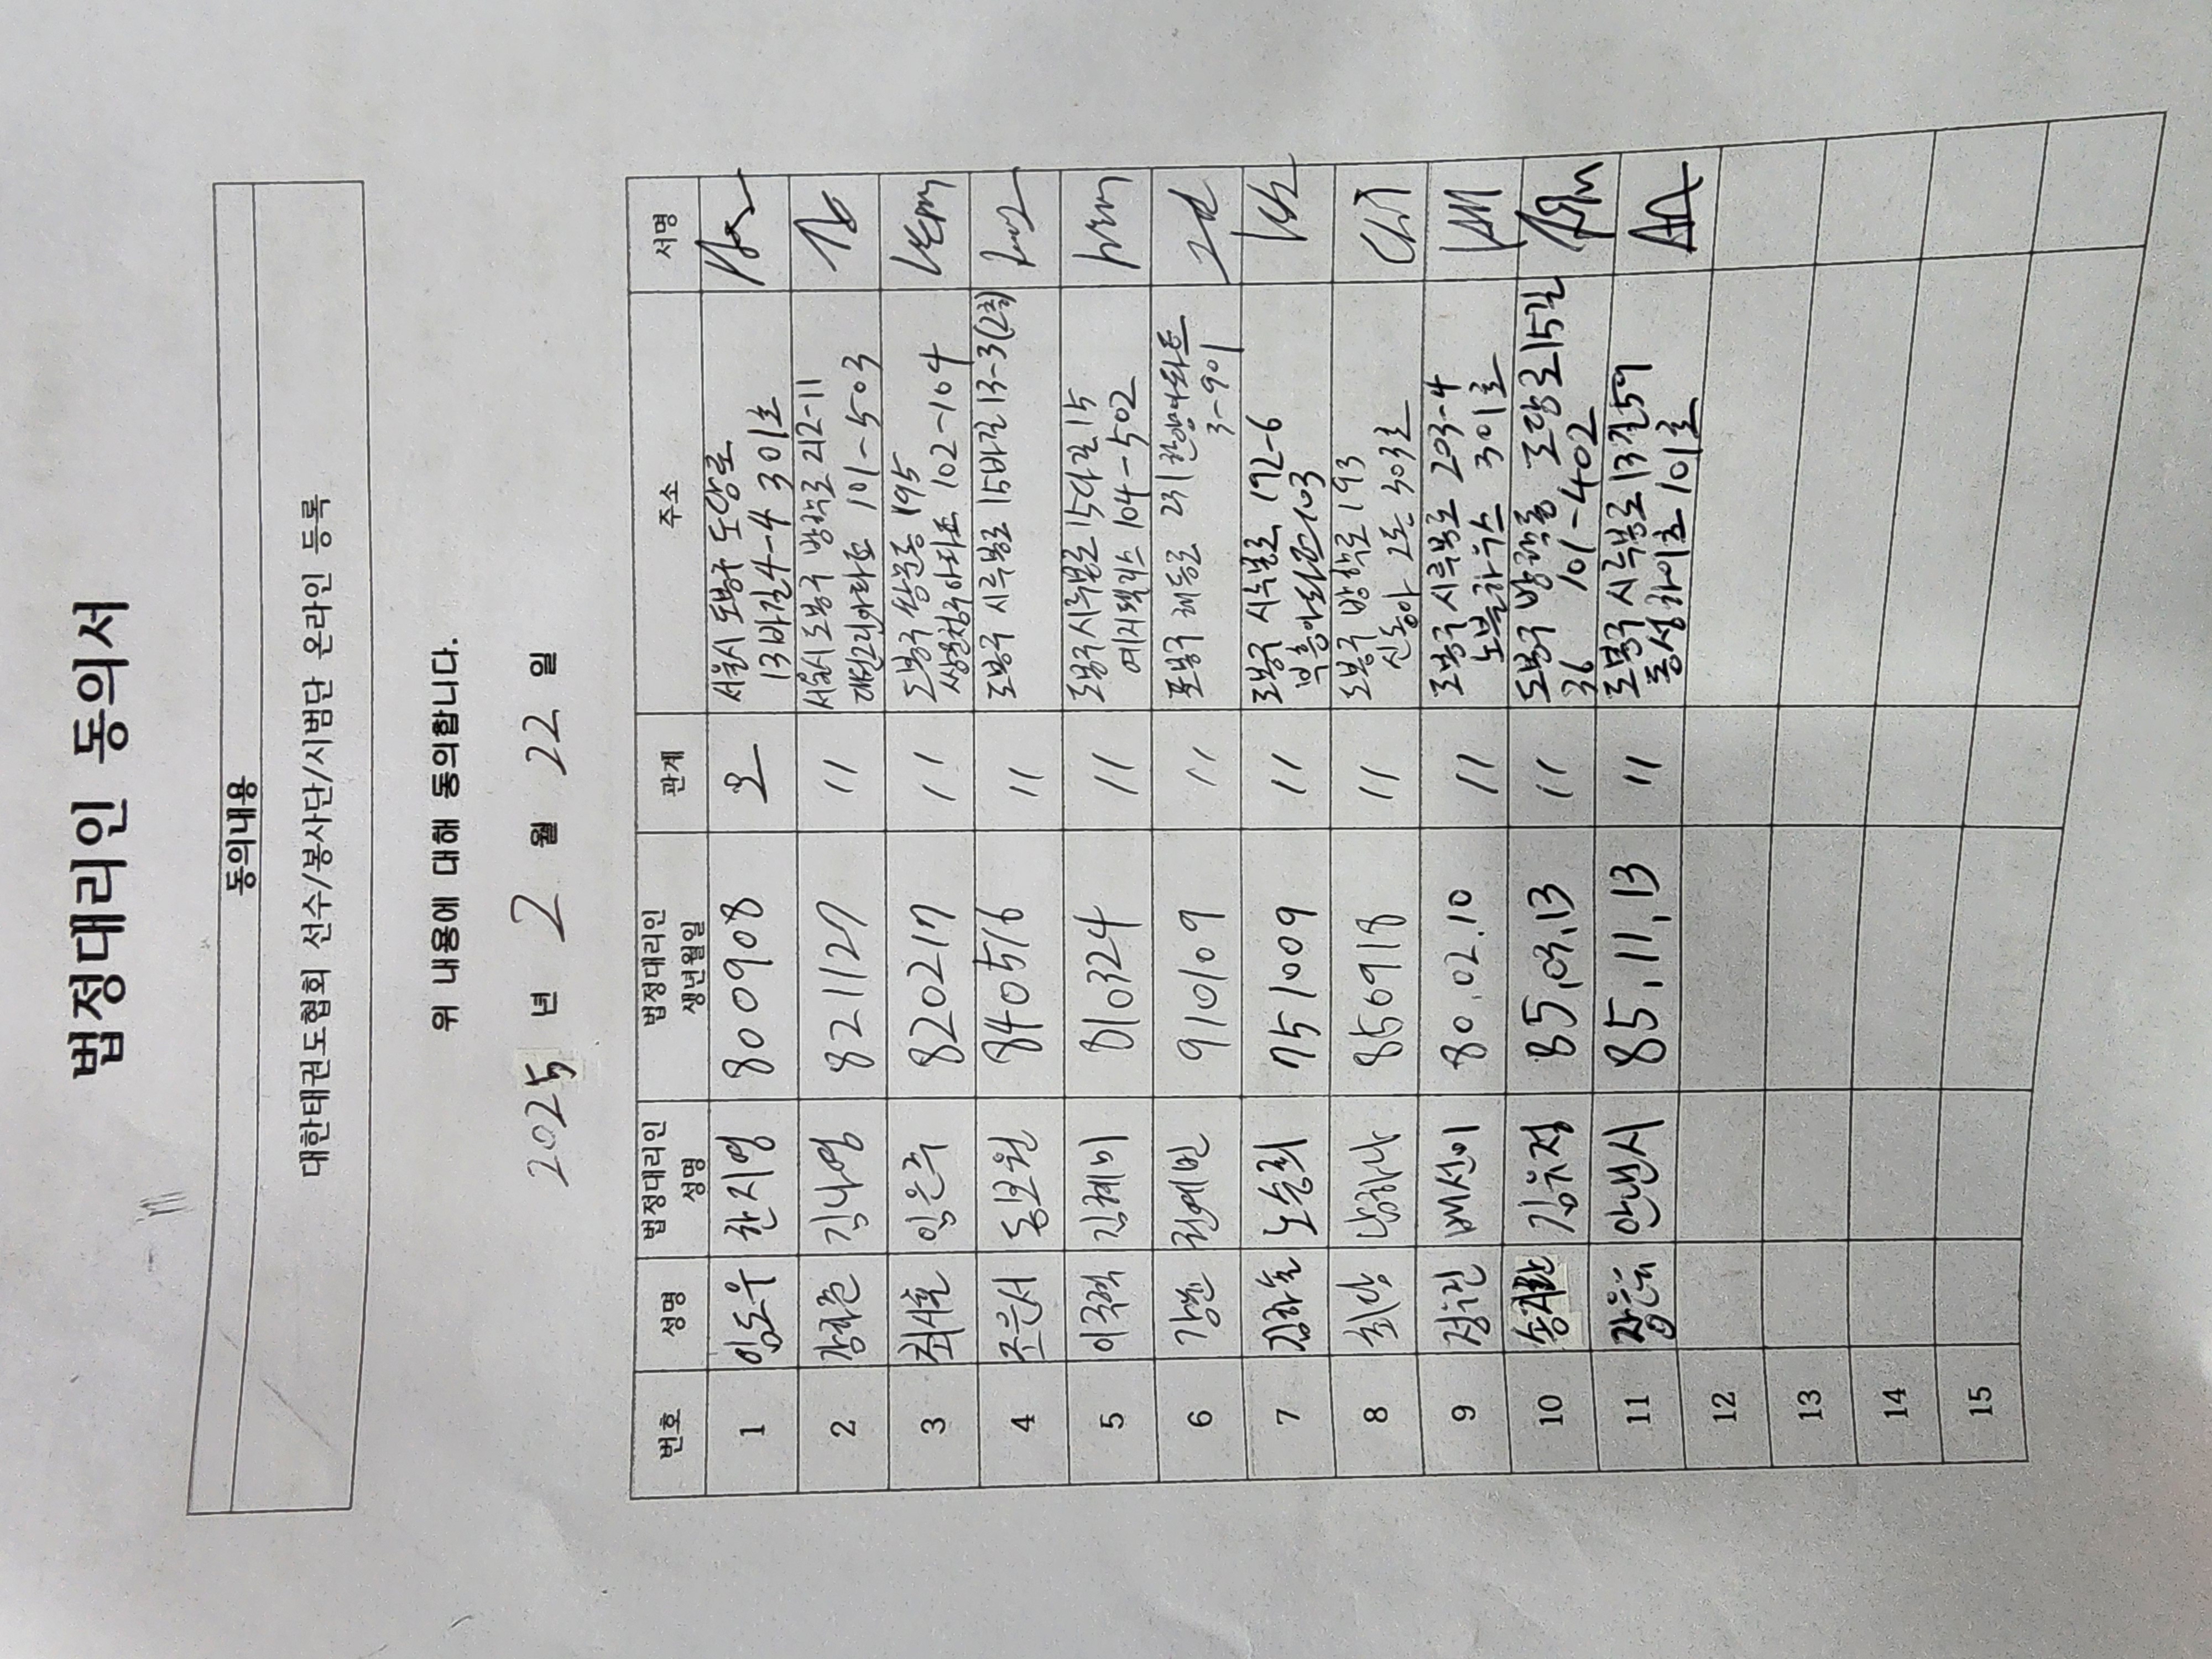 법정대리인 동의서
동의내용
대한태권도협회 선수/봉사단/시범단 온라인 등록
위 내용에 대해 동의합니다.
2025 년 2 월 22 일
번호 성명 법정대리인 성명 법정대리인 생년월일 관계 주소 서명
1 임도우 찬지영 800908 모 서울시 도봉구 도당로
13바길 4-4 301호
2 김나영 821127 〃 서울시 도봉구 방학로 212-11
101-503
3 최서호 임은주 820217 〃 도봉구 쌍문동 195
102-104
4 조은서 동보원 840516 〃 도봉구 시루봉로 15바길 13-3(2층)
5 이국혁 김혜비 810324 〃 도봉구 시루봉로 15다길 15
104-502
6 910109 〃 도봉구 231
3-901
7 김하늘 노슬희 751009 〃 도봉구 시루봉로 192-6
103
8 남하나 850918 〃 도봉구 방학로 193
신동아 2동 303호
9 배선이 80.02.10 〃 도봉구 시루봉로 203-4
노블하우스 301호
10 김유정 85.03.13 〃 도봉구 방학동 도당로 15길
36 101-402
11 안낸시 85.11.13 〃 도봉구 시루봉로 13길 59
동성하이츠 101호
12
13
14
15